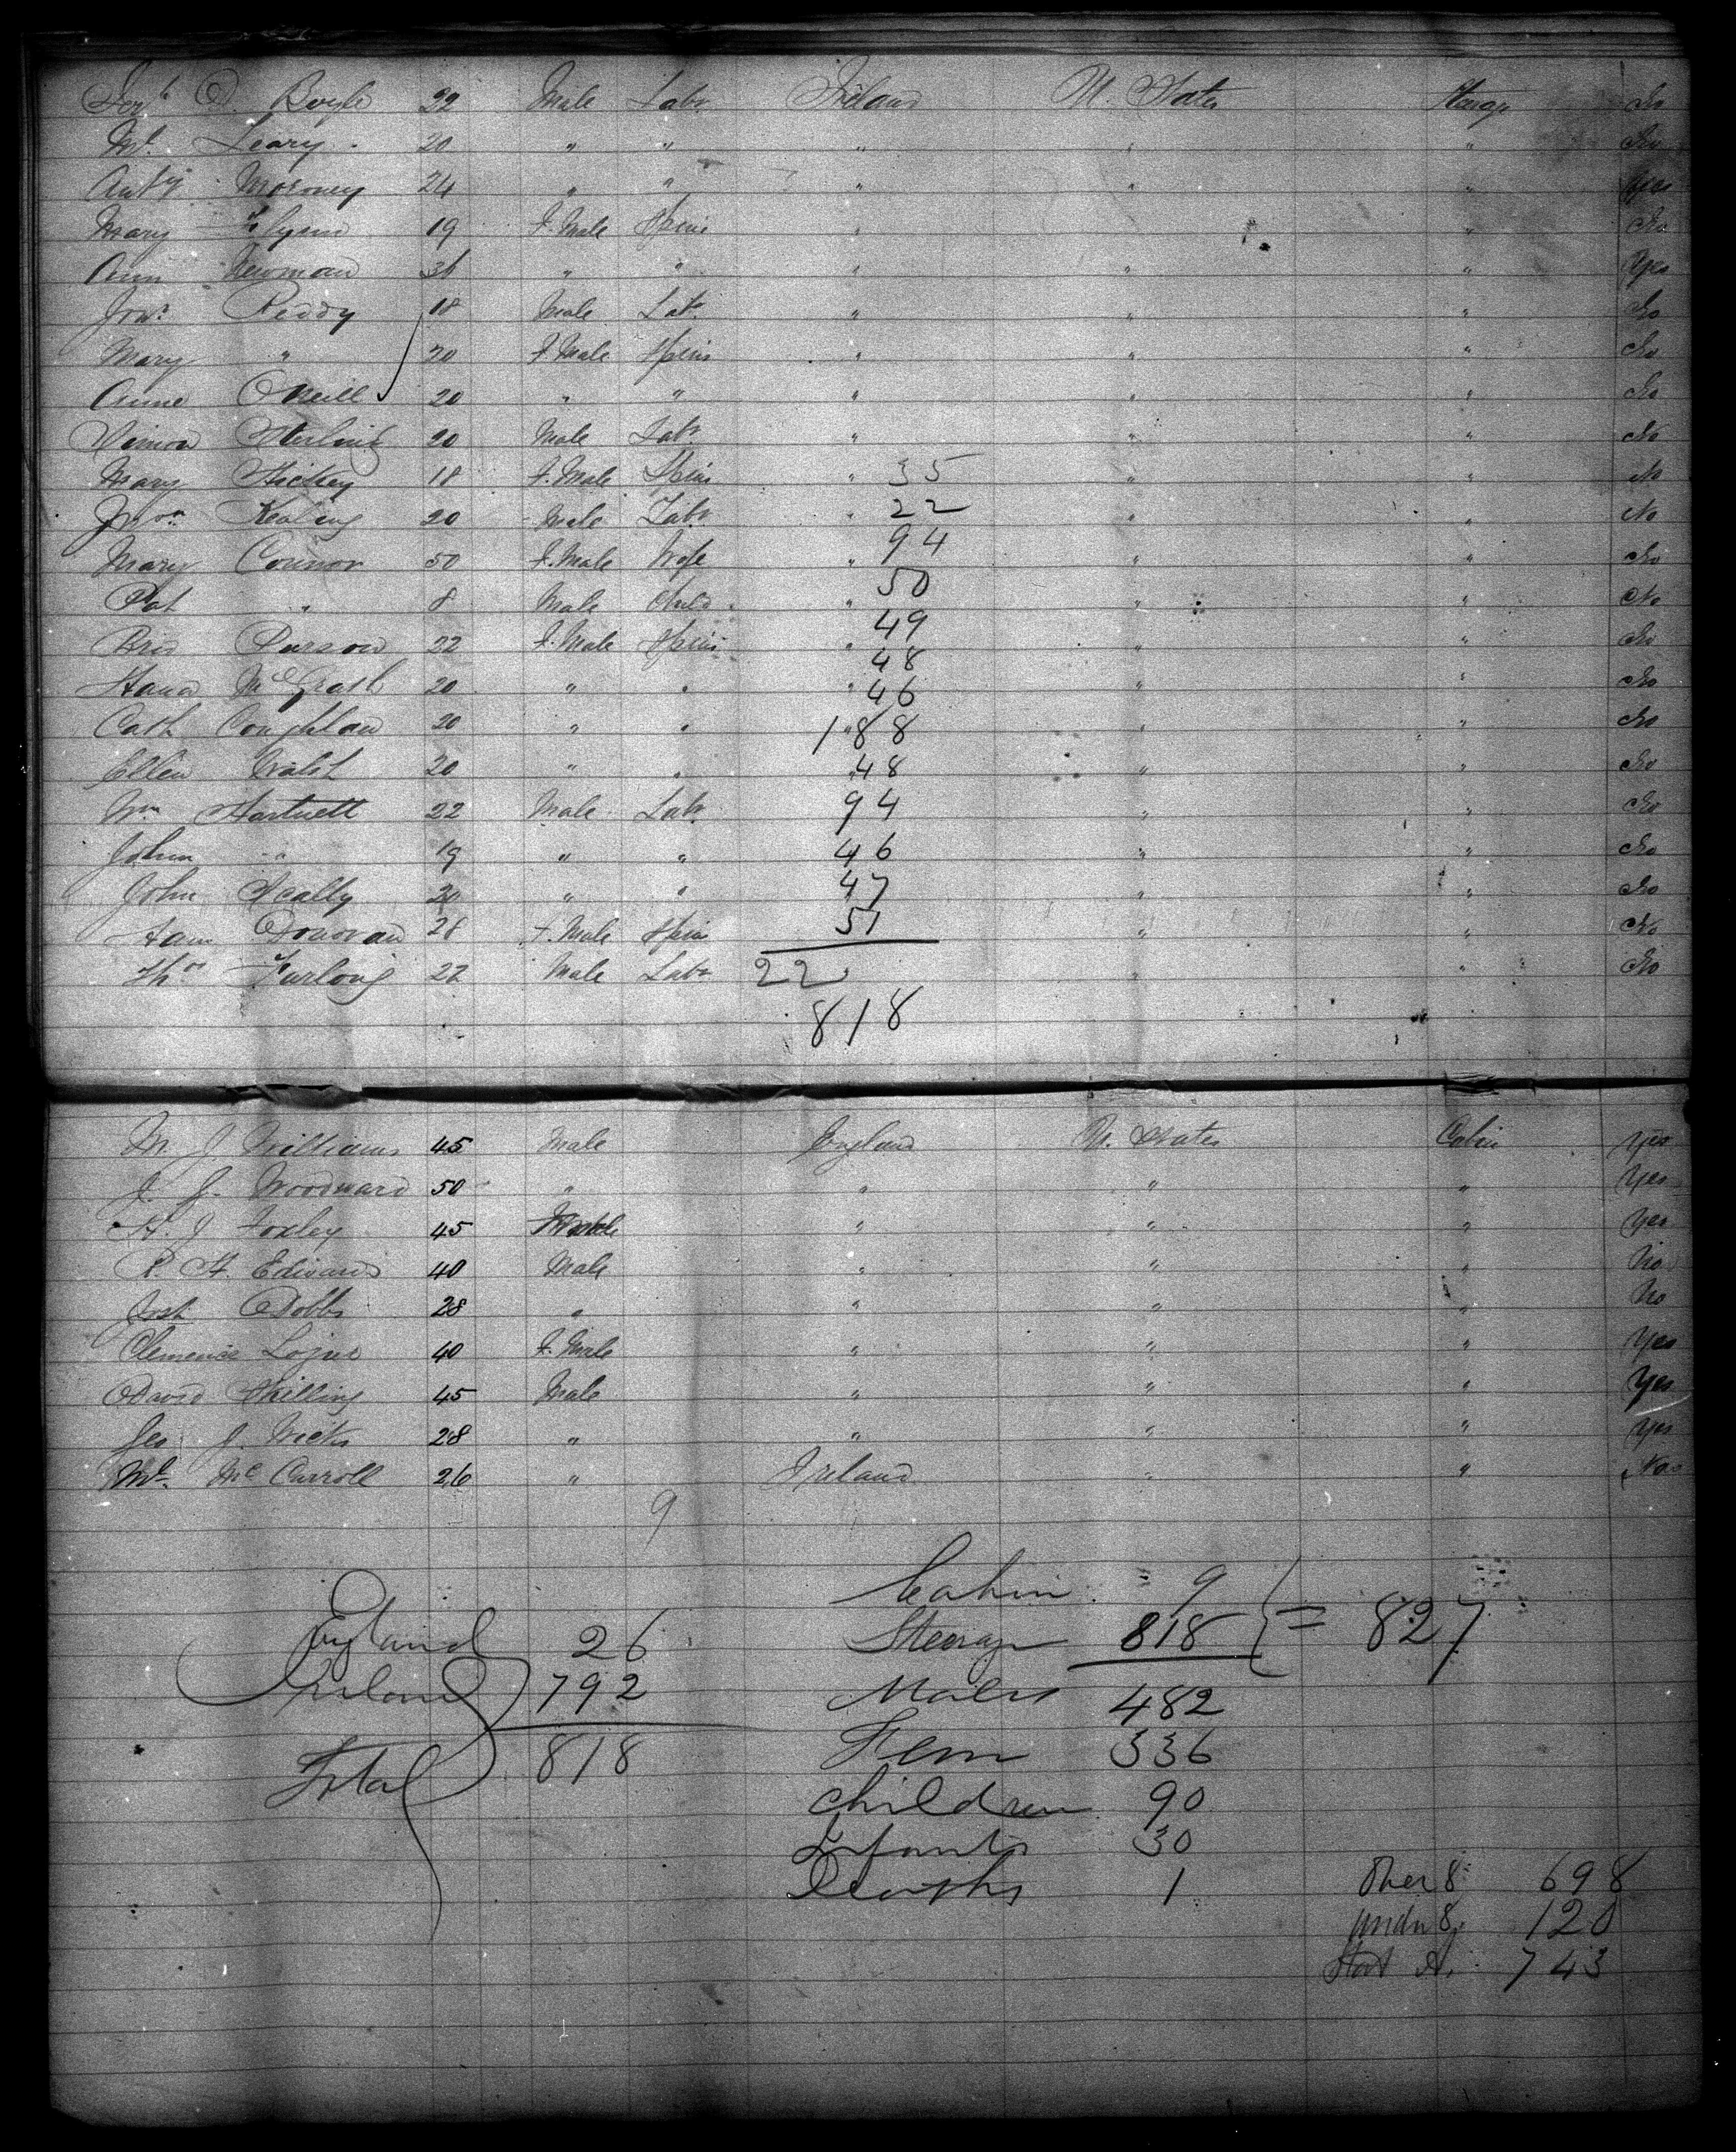 O Boyle 22 Male Labr Ireland U. States Steerage No
Ml. Leary 20 " " " " " No
Anty Moroney 24 " " " " " Yes
Mary Flynn 19 F. Male Spins " " No
Ann Newman 36 " " " " " Yes
Jno. Reddy 18 Male Labr " " " No
Mary " 20 F. Male Spins " " " No
Anne ONeill 20 " " " " " No
20 Male Labr " " " No
Mary Hickey 18 F. Male Spins " 35 " " No
Keating 20 Male Labr " 22 " " No
Mary Connor 50 F. Male Wife " 94 " " No
Pat " 8 Male Child " 50 " " No
Brid 22 F. Male Spins " 49 " " No
48
Hana McGrath 20 " " " 46 " " No
Cath Coughlan 20 " " " 188 " " No
Ellen Walsh 20 " " " 48 " " No
Wm Hartnett 22 Male Labr 94 " " No
John " 19 " " 46 " " No
John Scally 20 " " 47 " " No
Donovan 28 F. Male Spins 51 " " No
Thos Furlong 22 Male Labr 22 " " No
818
M. J. Williams 45 Male England U. States Cabin Yes
J. G. Woodward 50 " " " " Yes
H. J. Foxley 45 " " " Yes
R. H. Edwards 40 Male " " " No
Josh Dobbs 28 " " " " No
Clemence 40 F. Male " " " Yes
David Skilling 45 Male " " " Yes
Geo J. Wicks 28 " " " " Yes
Ml. Mc Carroll 26 " Ireland " " No
9
Cabin 9
England 26 Steerage 818 } = 827
Ireland 792 Males 482
Total 818 Fem 336
Children 90
Infants 30
Deaths 1 Over 8 698
under 8 120
743